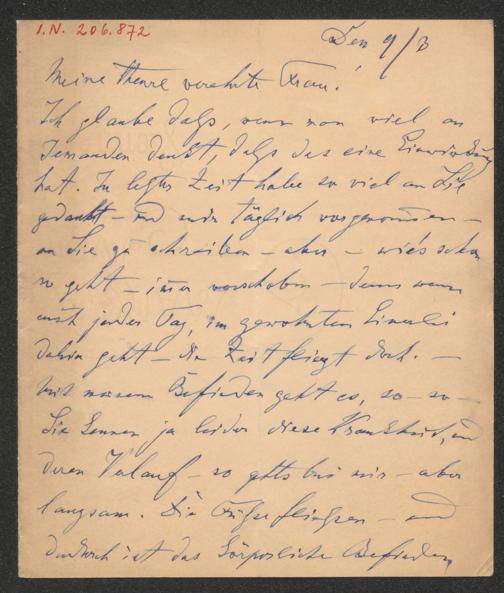 I.N. 206.872
Den 9/3
Meine Theure verehrte Frau!
Ich glaube dass, wenn man viel an
Jemanden denkt, dass das eine Einwirkung
hat. In letzter Zeit habe so viel an Sie
gedacht – und mir täglich vorgenommen –
an Sie zu schreiben – aber – wie's schon
so geht – immer verschoben – denn wenn
auch jeder Tag, im gewohnten Einerlei
dahin geht – die Zeit fliegt doch. –
Mit meinem Befinden geht es, so – so –
Sie kennen ja leider diese Krankheit, und
deren Verlauf – so geht's bei mir – aber
langsam. Die Füsse – und
dadurch ist das körperliche Befinden